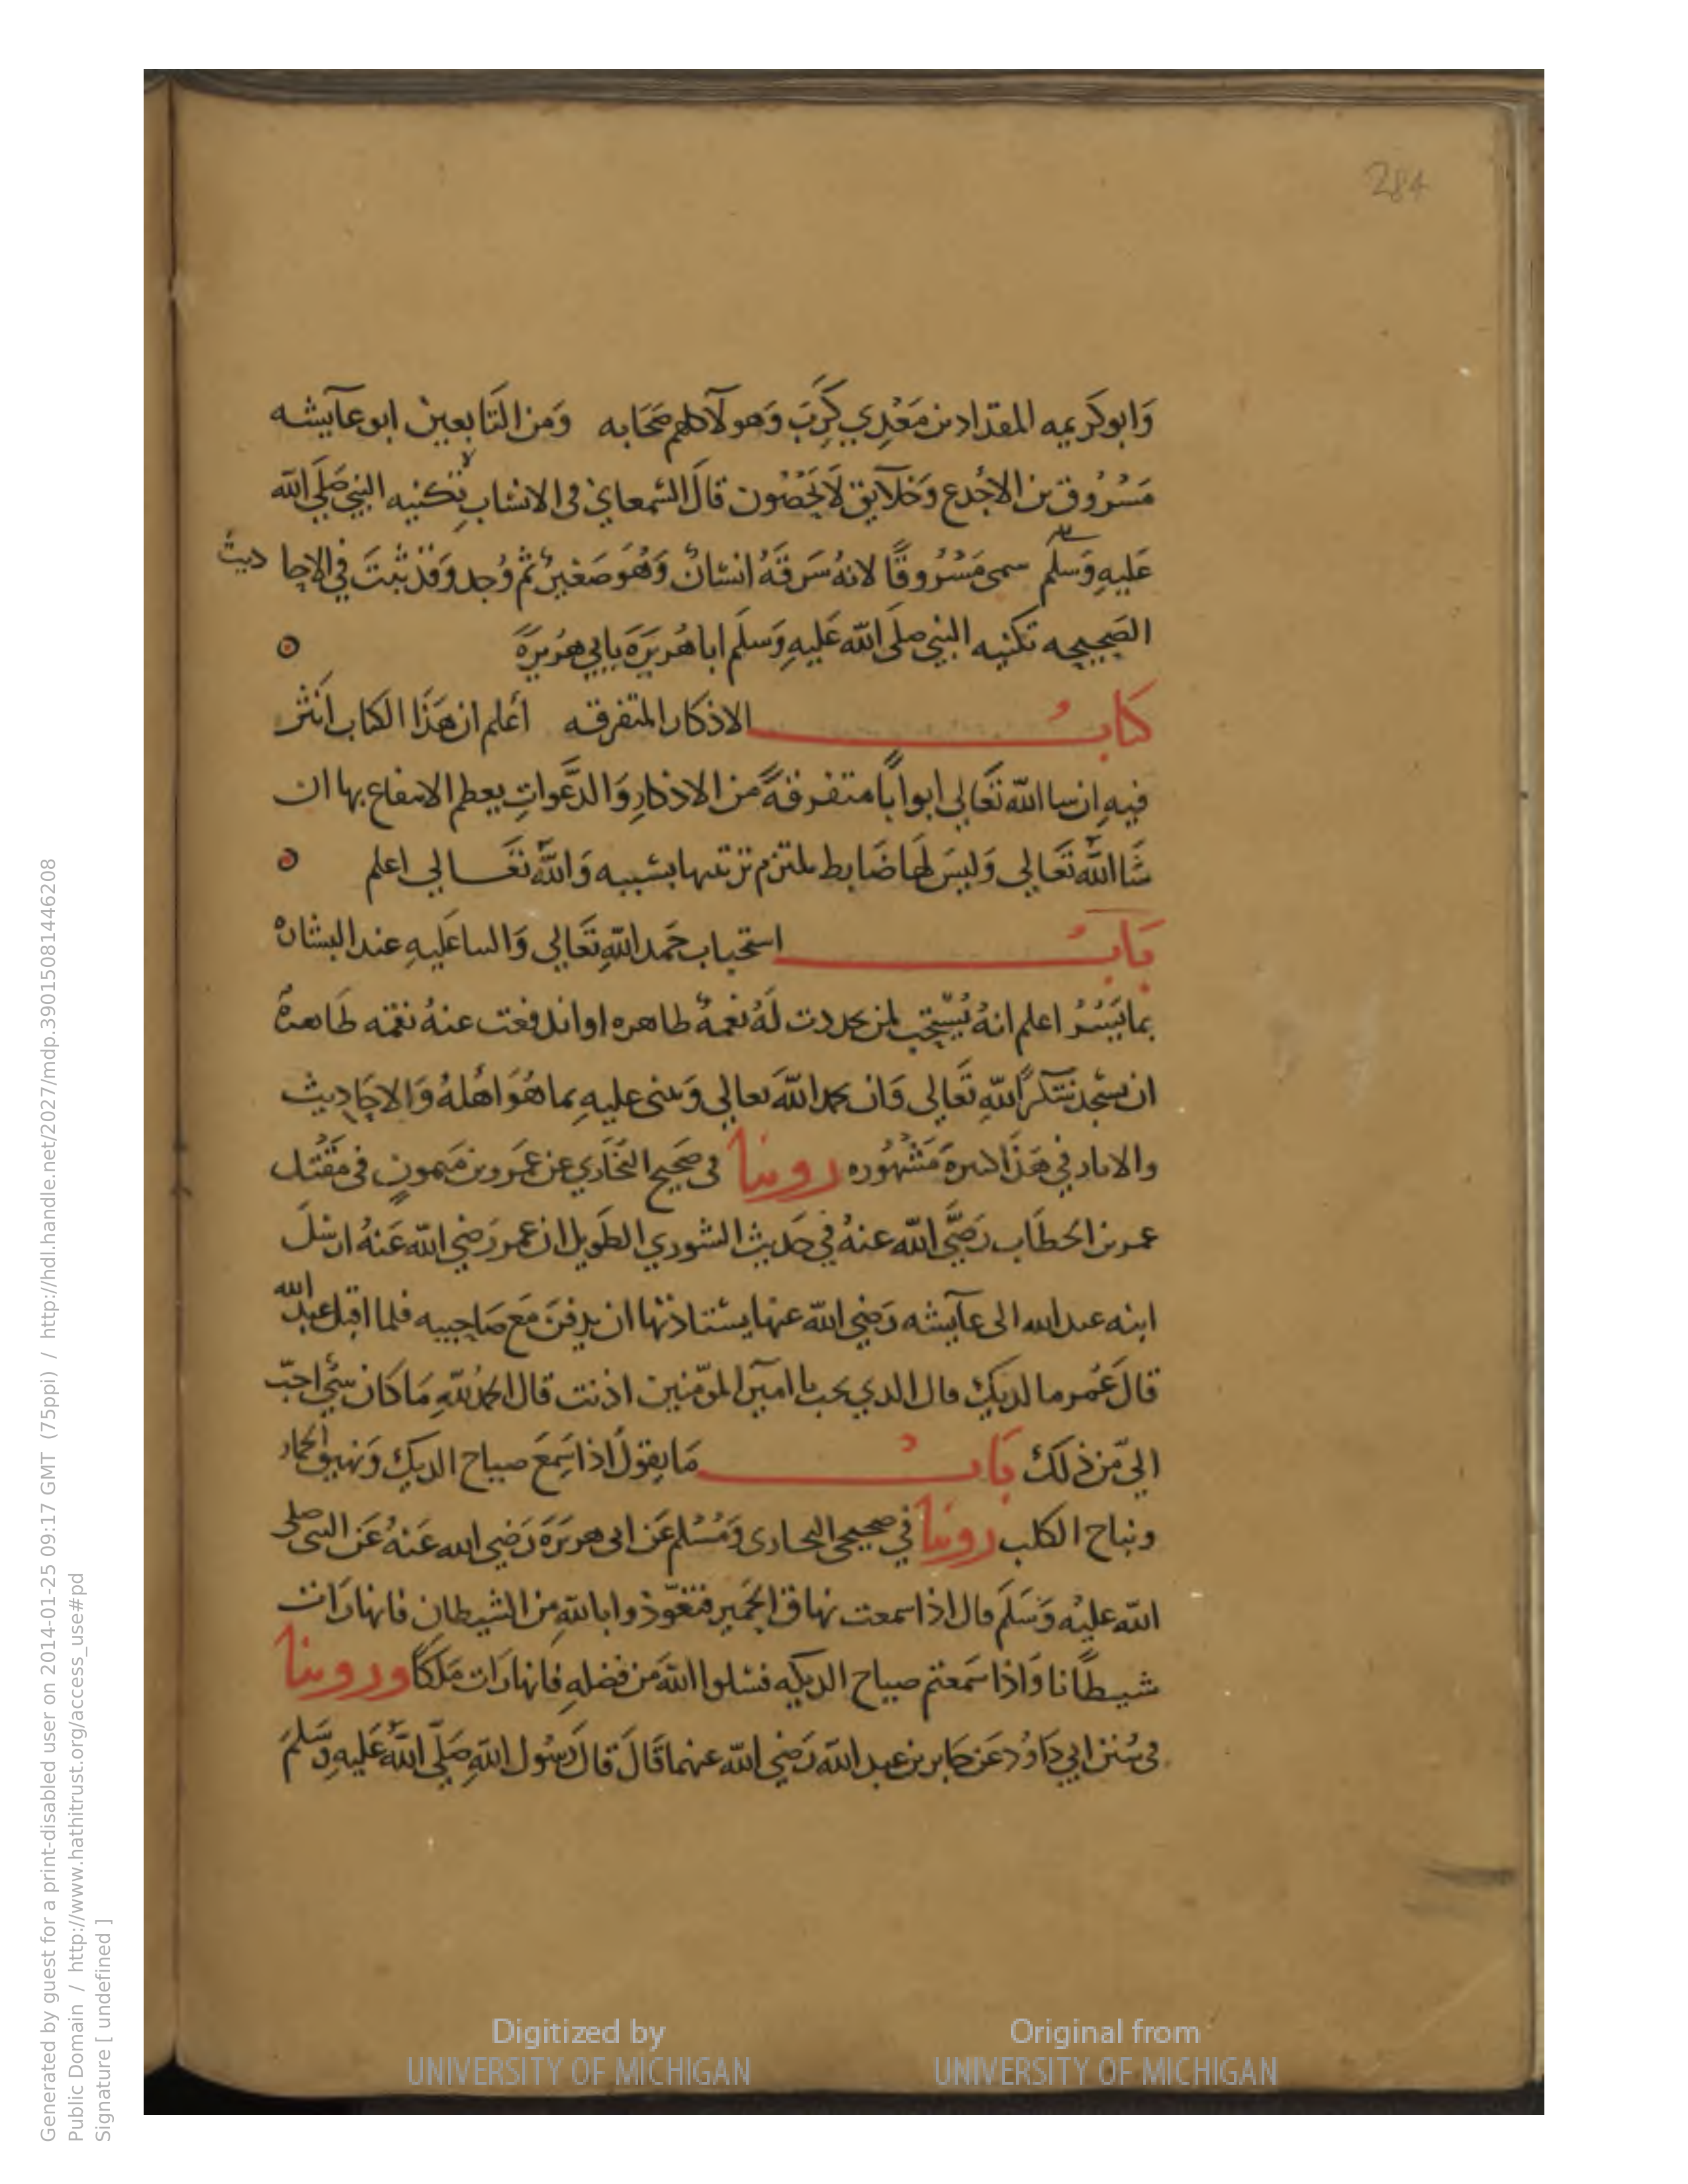 284
وَابوكَريمه المقداد بن مَعْدِي كَرِبَ وَهولآ كلهم صَحَابه وَمن التَابعين ابوعآيشه
مَسْرُوق بن الاجْدع وَخلآيق لَا يُحْصُون قالَ السْمعاني في الانسَاب بتكنيه النبي صَلى الله
عَليهِ وَسَلم سمى مَسْرُوقًا لانهُ سَرقَهُ انسَانٌ وَهُوَ صَغيرٌ ثم وُجد وَقد ثبتَ في الاحاديث
الصَحيحه تكنيه النبي صلى الله عَليهِ وَسلم اباهُرَيَرَة بابي هُرَيرَةَ
كتابُ الاذكار المتفرقه أعلم ان هَذَا الكتاب انثر
فيهِ ان سا الله تَعَالي ابوابًا متفرقةً من الاذكارِ وَالدَّعوَاتِ يعظم الانتفاع بها ان
شَا اللَّه تَعَالي وَليسَ لهَا ضَابط ملتزم ترتيبها بسَببه وَاللَّه تعَالي اعلم
بَابُ استحباب حَمد اللهِ تَعَالي وَالسا عَليهِ عند البشاره
بما يَسُرُ اعلم انهُ يُسْتحب لمن تحددت لَهُ نعْمهٌ طاهره او اندفعت عنهُ نقمه طَاهرةٌ
ان يسْجد شكرًا للهِ تَعَالى وَان يحمد اللهَ تعالي وَيثنى عليهِ بما هُوَ اهْلهُ وَالاحَاديث
والاىار في هَذا كىيرة مَشْهُوره روينا في صَحيح البخَاري عن عَمرو بن مَيمونٍ في مقْتل
عمر بن الخطاب رَضَّي الله عنهُ في حَديث الشوري الطويل ان عمر رَضي الله عَنهُ ارسْلَ
ابنه عبد الله الى عآيشه رَضي الله عنها يسْتاذنها ان يدفنَ مَع صَاحبيه فلما اقبل عبد الله
قالَ عُمر ما لديك قال الدي يحب يا امير المؤمنين اذنت قال الحمد للهِ مَا كان شيٌ احبّ
اليّ من ذلك بَابُ مَا يقولُ اذا سَمِعَ صياح الديك وَنهيق الحمار
ونباح الكلب روينا في صحيحى البخارى وَمُسْلم عَن ابى هريَرَة رَضي الله عَنهُ عَن النبى صلى
الله عليْه وَسَلَم قال اذا سمعت نهاق الحَمير فتعَوّذوا بالله مِن الشيطان فانها رَات
شيطَانا وَاذا سَمعتم صياح الديكه فسْلوا اللهَ من فضله فانها رَات مَلكًا وروينا
في سُنن ابي دَاوُد عَن جَابر بن عبد الله رَضي الله عنهما قَالَ قال رسُول اللهِ صَلّى اللَّه عَليه وسَّلم
Digitized by
UNIVERSITY OF MICHIGAN
Original from
UNIVERSITY OF MICHIGAN
Generated by guest for a print-disabled user on 2014-01-25 09:17 GMT (75ppi) / http://hdl.handle.net/2027/mdp.39015081446208
Public Domain / http://www.hathitrust.org/access_use#pd
Signature [ undefined ]